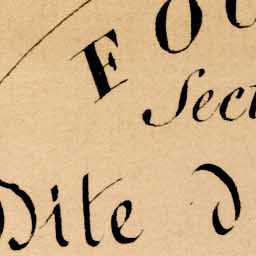 FO
Sect
Dite d